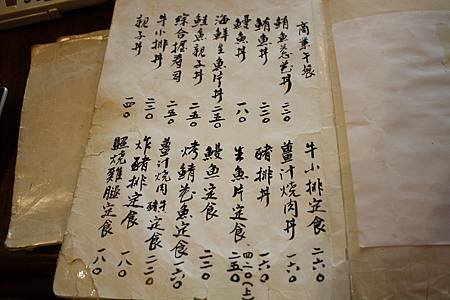 商業午餐
鮪魚葱花丼 二二〇
鮪魚丼 二二〇
鰻魚丼 一八〇
海鮮生魚片丼 二五〇
鮭魚親子丼 二五〇
綜合握壽司 二五〇
牛小排丼 二二〇
親子丼 一四〇
牛小排定食 二六〇
薑汁燒肉丼 一六〇
豬排丼 一六〇
生魚片定食 四二〇(上) 二五〇
鰻魚定食 二二〇
烤鯖花魚定食 一六〇
薑汁燒肉牛豬定食 二二〇
炸豬排定食 一八〇
照燒雞腿定食 一八〇